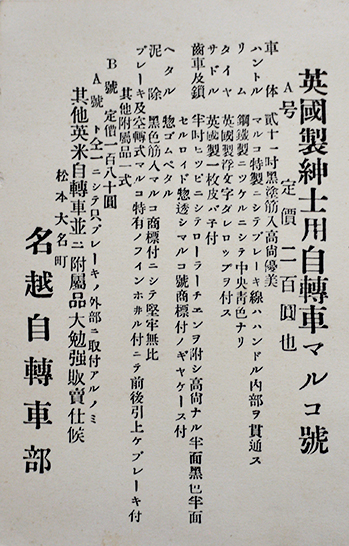 英國製紳士用自轉車マルコ號
A号 定價 二百圓也
車体 貳十一吋黑塗筋入高尚優美
ハンドル マルコ特製ニシテブレーキ線ハハンドル内部ヲ貫通ス
リム 鋼鐵製ニツケルニシテ中央靑色ナリ
タイヤ 英國製浮文字ダンロップヲ付ス
サドル 英國製一枚皮バ子付
齒車及鎖 半吋ピツピニシテローラーチエンヲ附シ高尚ナル半面黑色半面セルロイド惣透シマルコ號商標付ノギヤケース付
ペタル 惣ゴムペタル
泥除 黑色筋入マルコ商標付ニシテ堅牢無比
ブレーキ及空轉式 マルコ特有ノフインホ井ル付ニテ前後引上ケブレーキ付
其他附屬品一式
B號 定價一百八十圓
A號ト仝一ニシテ只ブレーキノ外部ニ取付アルノミ
其他英米自轉車並ニ附屬品大勉强販賣仕候
松本大名町
名越自轉車部